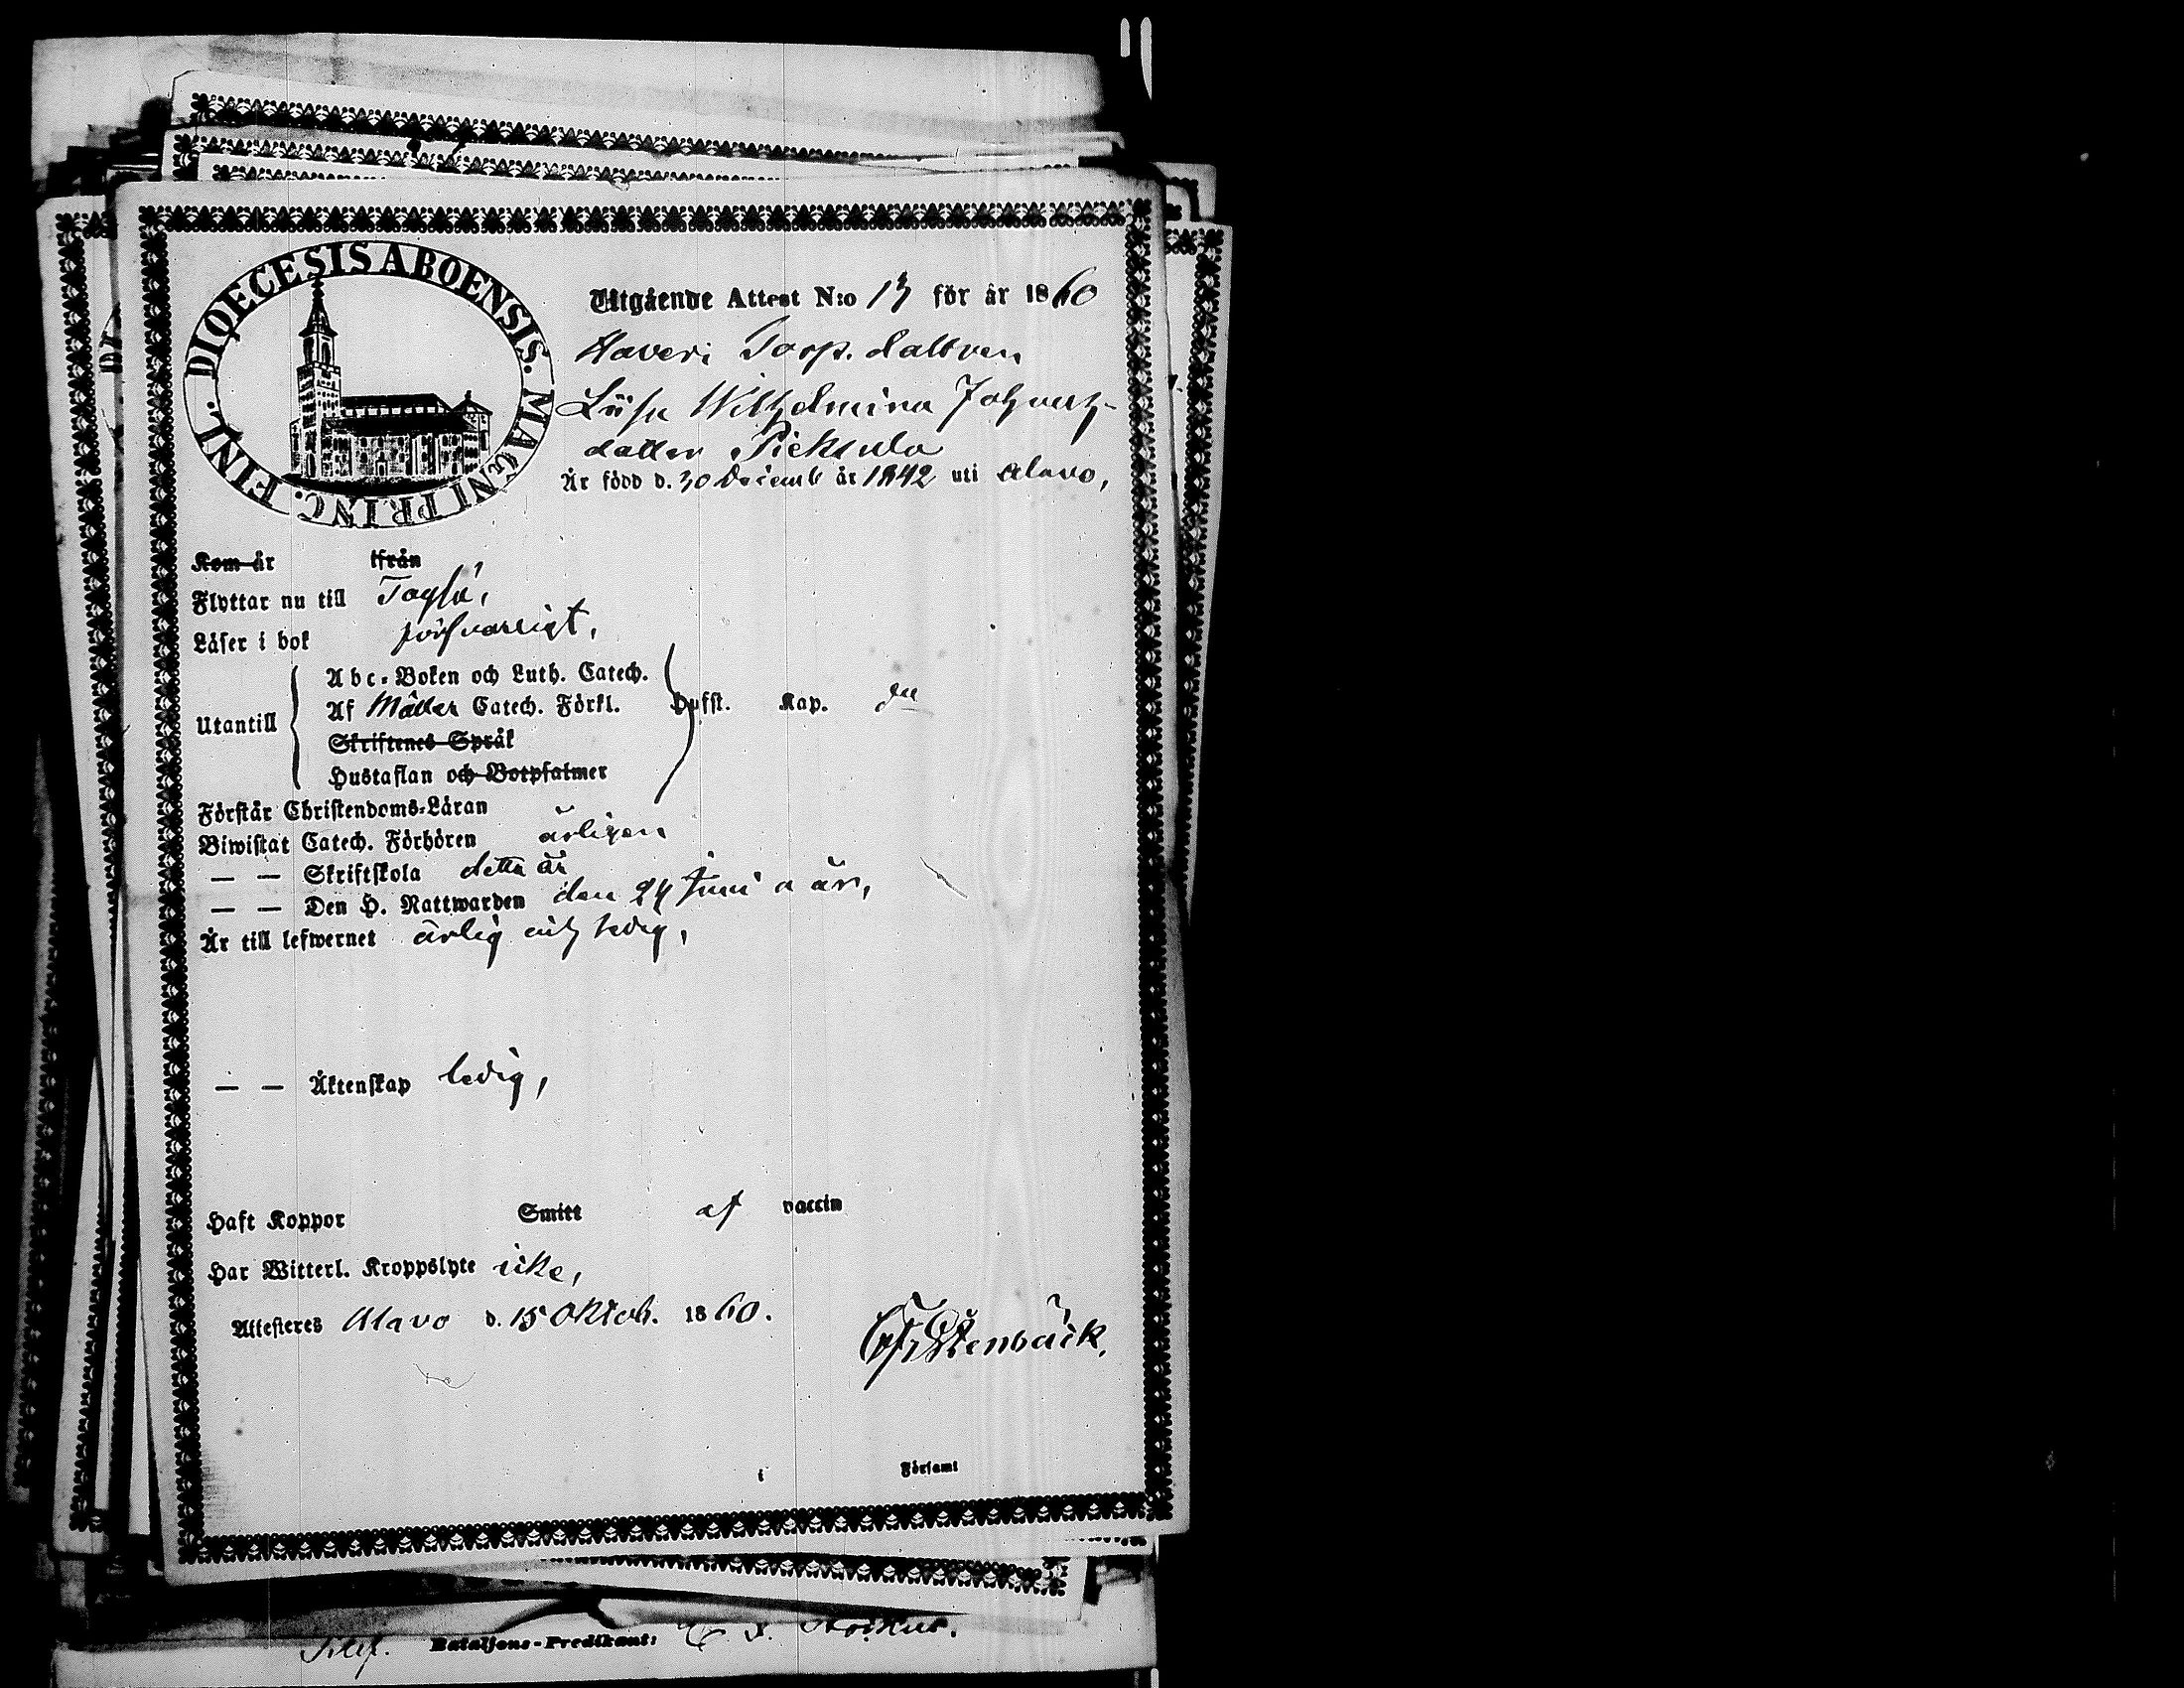 DIOECESIS ABOENSIS. MAGNI PRINC. FINL.
Utgående Attest N:o 13 för år 1860
Haveri Torp. dattren
Lisa Wilhelmina Johans-
dotter Pickula
Är född d. 30 Decemb år 1842 uti Alavo,
Kom år ifrån
Flyttar nu till Toysä,
Läser i bok försvarligt,
Abc-Boken och Luth. Catech.
Utantill Af Möller Catech. Förkl. Hufst. Kap.
Skriftenes Språk
Hustaflan och Botpsalmer
Förstår Christendoms-Läran
Biwistat Catech. Förhören årligen
— — Skriftskola detta år
— — Den H. Nattwarden den 24 Juni a år,
Är till lefwernet ärlig och ledig,
— — Äktenskap ledig,
Haft Koppor Smitt af vaccin
Har Witterl. Kroppslyte icke,
Attesteres Alavo d. 15 Oktob. 1860.
Stenbäck,
i Församl
Bataljons-Predikant: